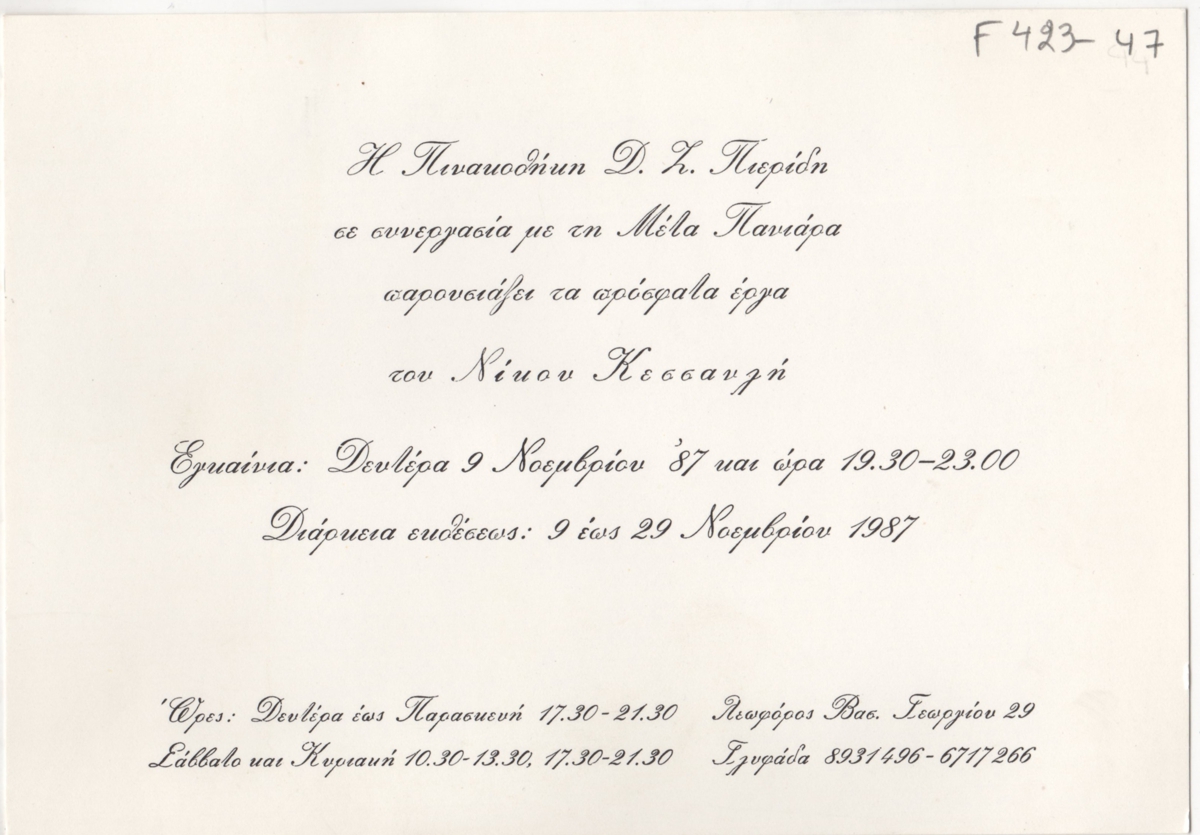 F 423-47
Η Πινακοθήκη Δ. Ζ. Πιερίδη
σε συνεργασία με τη Μέτα Πανιάρα
παρουσιάζει τα πρόσφατα έργα
του Νίκου Κεσσανλή
Εγκαίνια: Δευτέρα 9 Νοεμβρίου '87 και ώρα 19.30-23.00
Διάρκεια εκθέσεως: 9 έως 29 Νοεμβρίου 1987
Ώρες: Δευτέρα έως Παρασκευή 17.30-21.30
Σάββατο και Κυριακή 10.30-13.30, 17.30-21.30
Λεωφόρος Βασ. Γεωργίου 29
Γλυφάδα 8931496-6717266